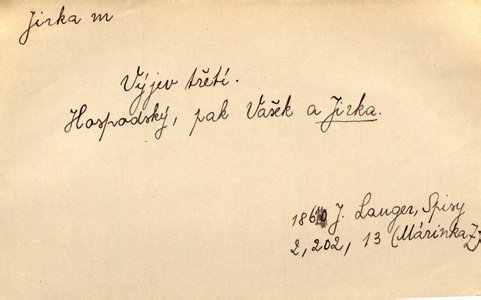 Jirka m
Výjev třetí.
Hospodský, pak Vašek a Jirka.
J. Langer, Spisy
2, 202, 13 (Márinka Ž)